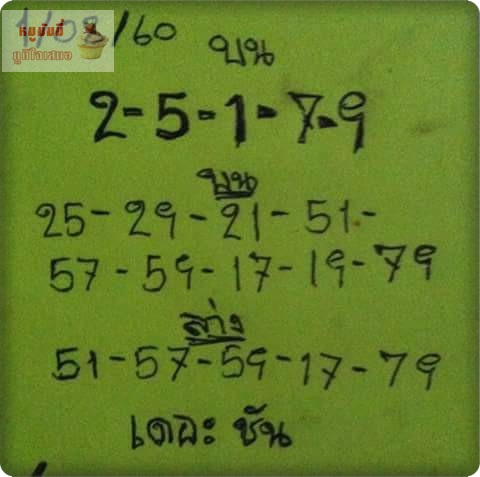 1/08/60
หมูมันนี่
บน
2-5-1-7-9
บน
25-29-21-51-
57-59-17-19-79
ล่าง
51-57-59-17-79
เดอะ ซัน